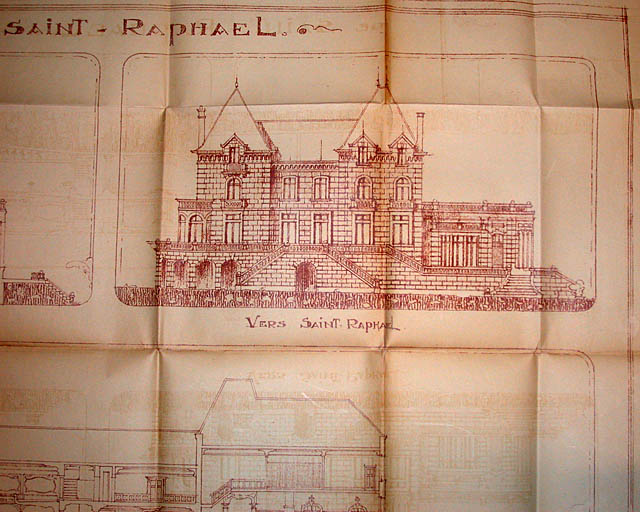 SAINT-RAPHAEL.
VERS SAINT-RAPHAEL